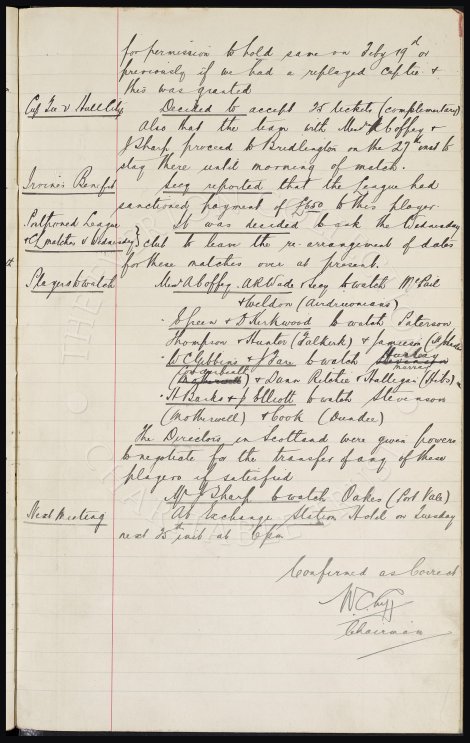 for permission to hold same on Feby 19d or
previously if we had a replayed cup tie &
this was granted
Cup Tie v Hull City Decided to accept 25 tickets (complimentary)
Also that the team with Messrs A Coffey &
J Sharp proceed to Bridlington on the 27th inst to
stay there until morning of match.
Irvine's Benefit Secy reported that the League had
sanctioned payment of £650 to this player.
Postponed League It was decided to ask the Wednesday
& CL matches v Wednesday } club to leave the re-arrangement of dates
for these matches over at present.
Players to watch Messrs A Coffey. A R Wade & Secy to watch McPail
& Weldon (Airdrieonians)
E Green & D Kirkwood to watch Paterson
Thompson & Hunter (Falkirk) & Jamieson
W C Gibbins & J Fare to watch Murray
& Dunn Ritchie & Halligan (Hibs)
H Banks & J Elliott to watch Stevenson
(Motherwell) & Cook (Dundee)
The Directors in Scotland were given powers
to negotiate for the transfer of any of these
players if satisfied
Mr J Sharp to watch Oakes (Port Vale)
Next Meeting At Exchange Station Hotel on Tuesday
next 25th inst at 6pm
Confirmed as Correct
W. C. Cuff
Chairman